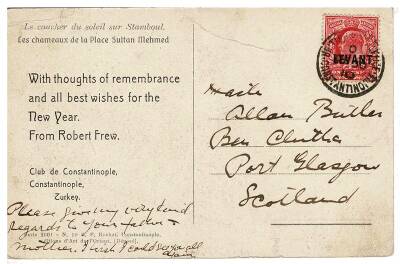 Le coucher du soleil sur Stamboul.
Les chameaux de la Place Sultan Mehmed
With thoughts of remembrance
and all best wishes for the
New Year.
From Robert Frew.
Club de Constantinople,
Constantinople,
Turkey.
Please give my very kind
regards to your father &
mother. I wish I could see you all
again
Série 2001 — N. 10
Constantinople.
Editions d'Art de l'Orient.
LEVANT
Allan Butler
Ben Clutha
Port Glasgow
Scotland